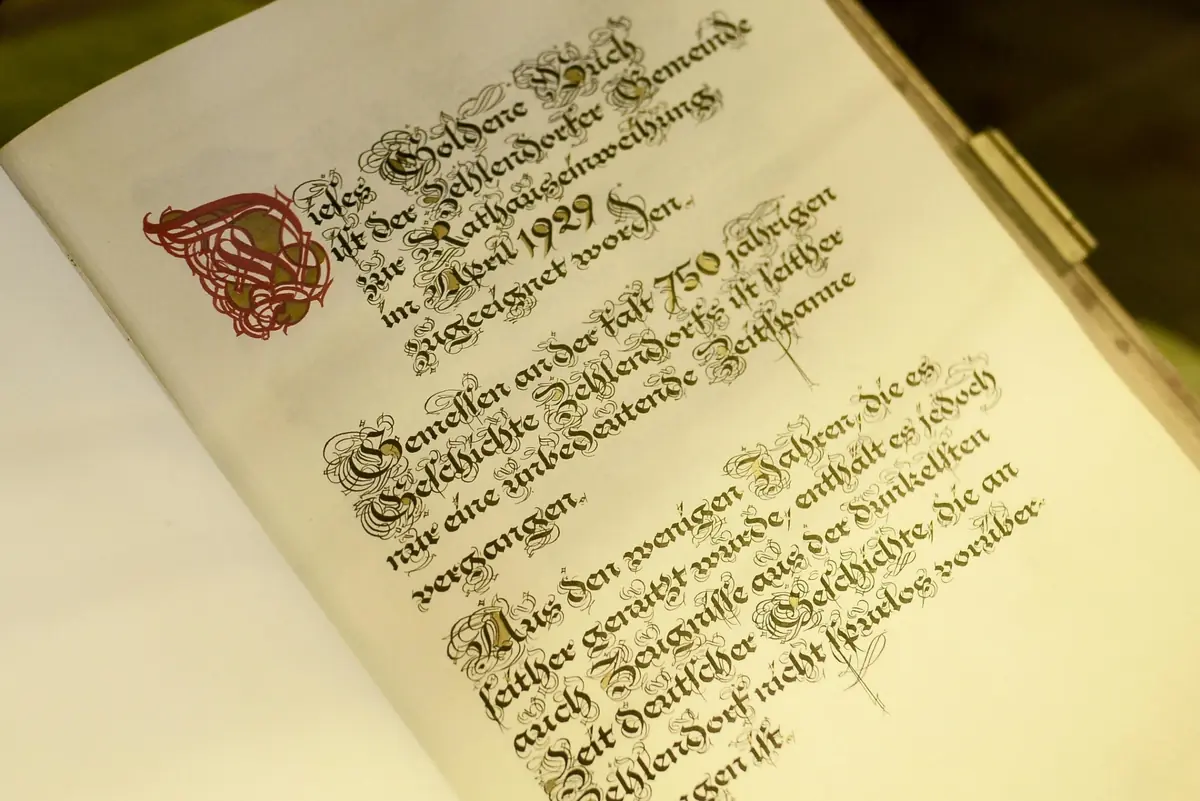 Dieses Goldene Buch
ist der Zehlendorfer Gemeinde
zur Rathauseinweihung
im April 1929
zugeeignet worden.
Gemessen an der fast 750 jährigen
Geschichte Zehlendorfs ist seither
nur eine unbedeutende Zeitspanne
vergangen.
Aus den wenigen Jahren, die es
seither genutzt wurde, enthält es jedoch
auch Zeugnisse aus der dunkelsten
Zeit deutscher Geschichte, die an
Zehlendorf nicht spurlos vorüber-
gen ist